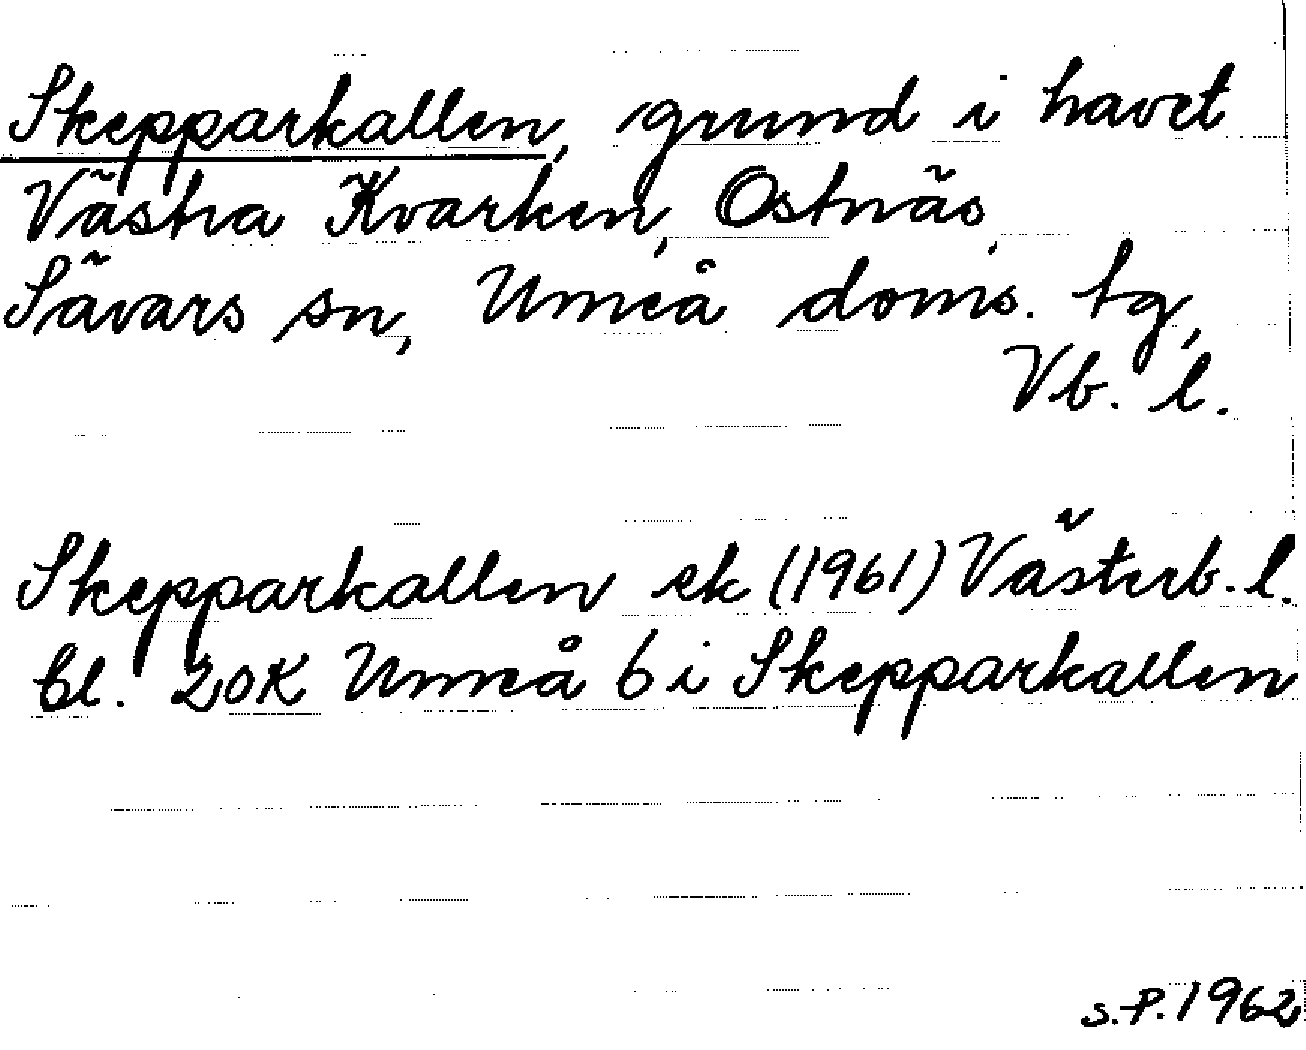 Skepparkallen, grund i havet
Västra Kvarken, Ostnäs,
Sävars sn, Umeå doms. tg,
Vb. l.
Skepparkallen ek (1961) Västerb. l.
bl. 20K Umeå 6 i Skepparkallen
S.P. 1962